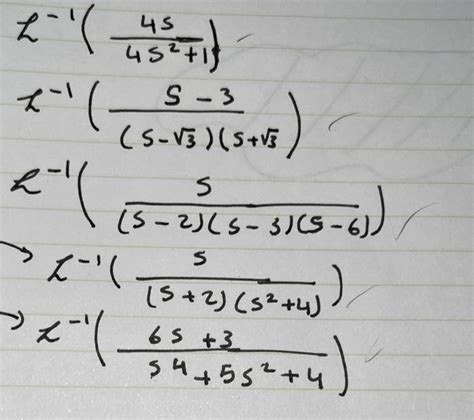 ℒ⁻¹ ( 4s / (4s² + 1) )
ℒ⁻¹ ( (s - 3) / ((s - √3)(s + √3)) )
ℒ⁻¹ ( s / ((s - 2)(s - 3)(s - 6)) )
→ ℒ⁻¹ ( s / ((s + 2)(s² + 4)) )
→ ℒ⁻¹ ( (6s + 3) / (s⁴ + 5s² + 4) )